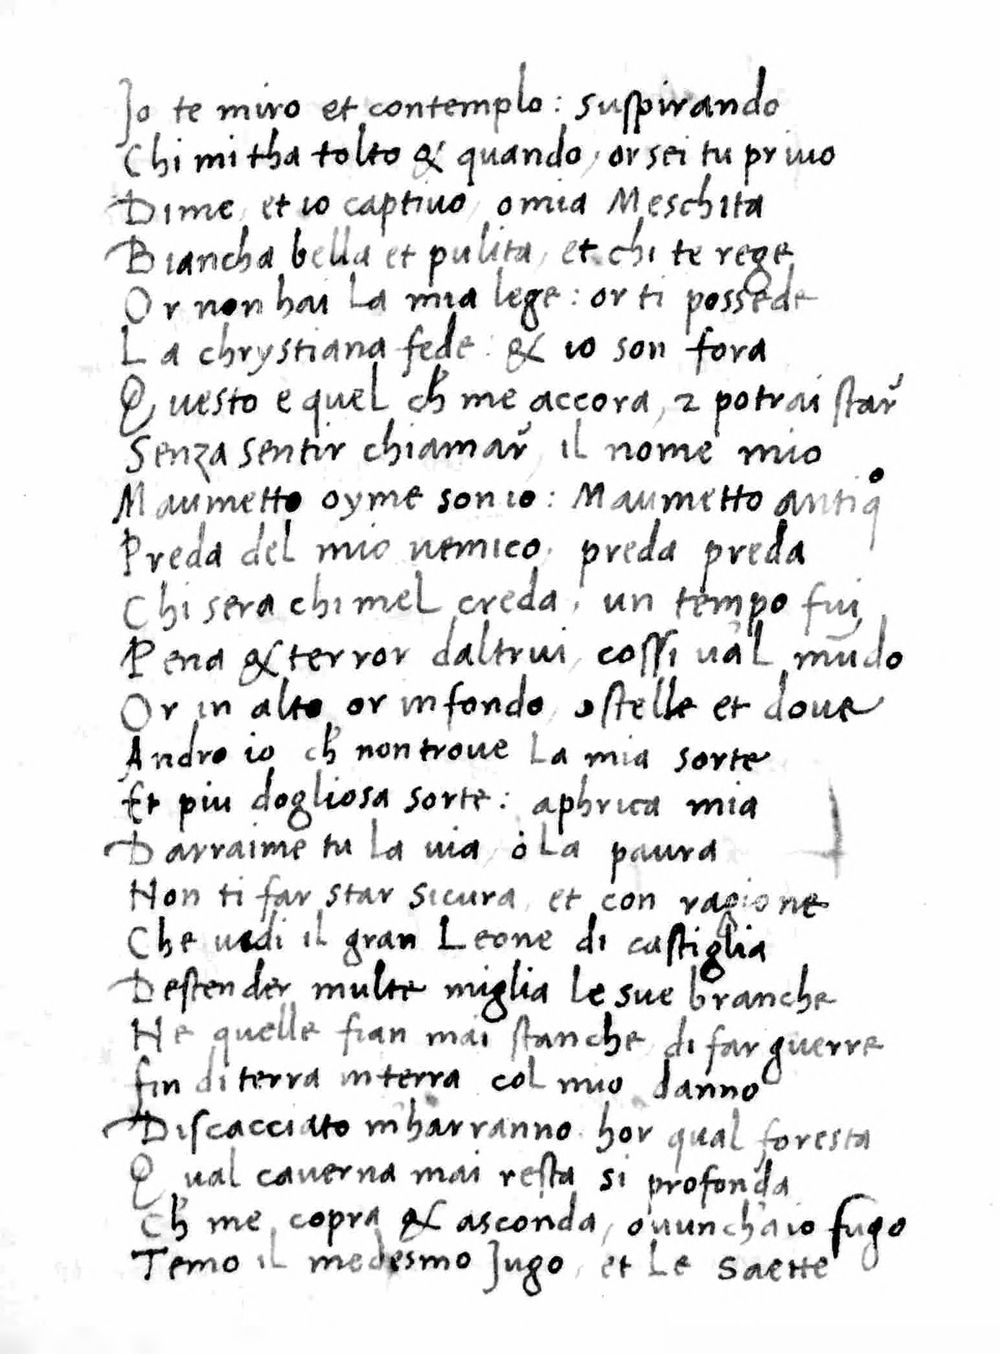 Jo te miro et contemplo : suspirando
Chi mi tha tolto & quando, or sei tu priuo
Dime, et io captiuo, o mia Meschita
Biancha bella et pulita, et chi te rege
Or non hai La mia lege : or ti possede
La chrystiana fede : & io son fora
Questo e quel ch̃ me accora, 2 potrai star̃
Senza sentir chiamar̃, il nome mio
Maumetto oyme son io : Maumetto antiq̊
Preda del mio nemico, preda preda
Chi sera chi mel creda, un tempo fui
Pena & terror daltrui, cossi ua L mũdo
Or in alto or in fondo, o stelle et doue
Andro io ch̃ non troue La mia sorte
Et piu dogliosa sorte : aphrica mia
Darraime tu La uia, o La paura
Non ti far star sicura, et con ragione
Che uedi il gran Leone di castiglia
Destender multe miglia le sue branche
Ne quelle fian mai stanche, di far guerre
fin di terra in terra col mio danno
Discacciato mharranno. hor qual foresta
Qual cauerna mai resta si profonda
Ch̃ me copra & asconda, ouunchaio fugo
Temo il medesmo Jugo, et Le saette